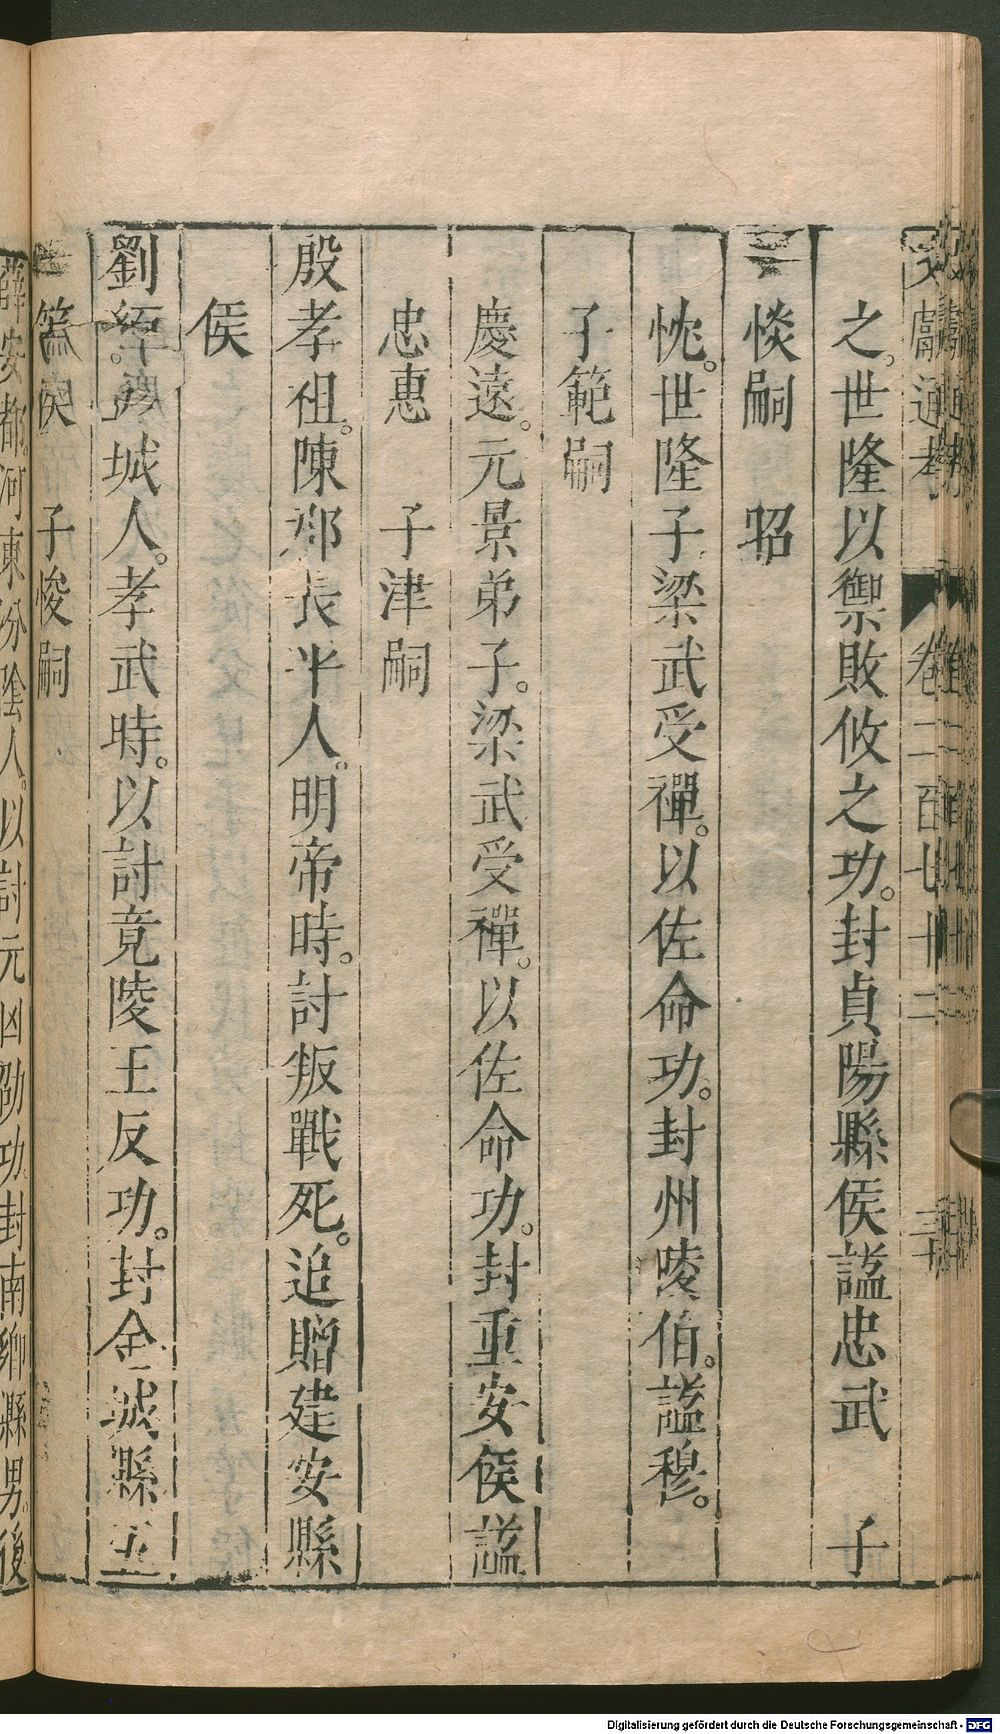 文獻通考 卷二百七十二 三十
之。世隆以禦敗攸之功。封貞陽縣侯謚忠武 子
惔嗣 昭
忱。世隆子梁武受禪。以佐命功。封州陵伯。謚穆。
子範嗣
慶遠。元景弟子。梁武受禪。以佐命功。封重安侯謚
忠惠 子津嗣
殷孝祖。陳郡長平人。明帝時。討叛戰死。追贈建安縣
侯
劉 城人。孝武時。以討竟陵王反功。封金城縣五
等侯 子悛嗣
薛安都。河東汾陰人。以討元凶劭功封南鄉縣男。後
Digitalisierung gefördert durch die Deutsche Forschungsgemeinschaft - DFG